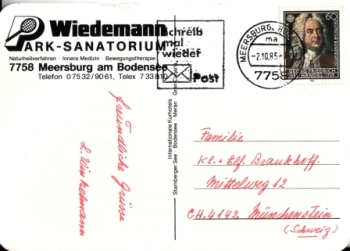 Wiedemann
PARK-SANATORIUM
Naturheilverfahren · Innere Medizin · Bewegungstherapie
7758 Meersburg am Bodensee
Telefon 07532/9061, Telex 733810
schreib
mal
wieder
Post
MEERSBURG, B
ma
-2.10.85
7758
60
Internationale Kurhotels
Starnberger See · Bodensee · Meran
Freundliche Grüsse
Familie
Kl. + Elf. Brankhoff
Mittelweg 12
CH. 4142 Münchenstein
(Schweiz)